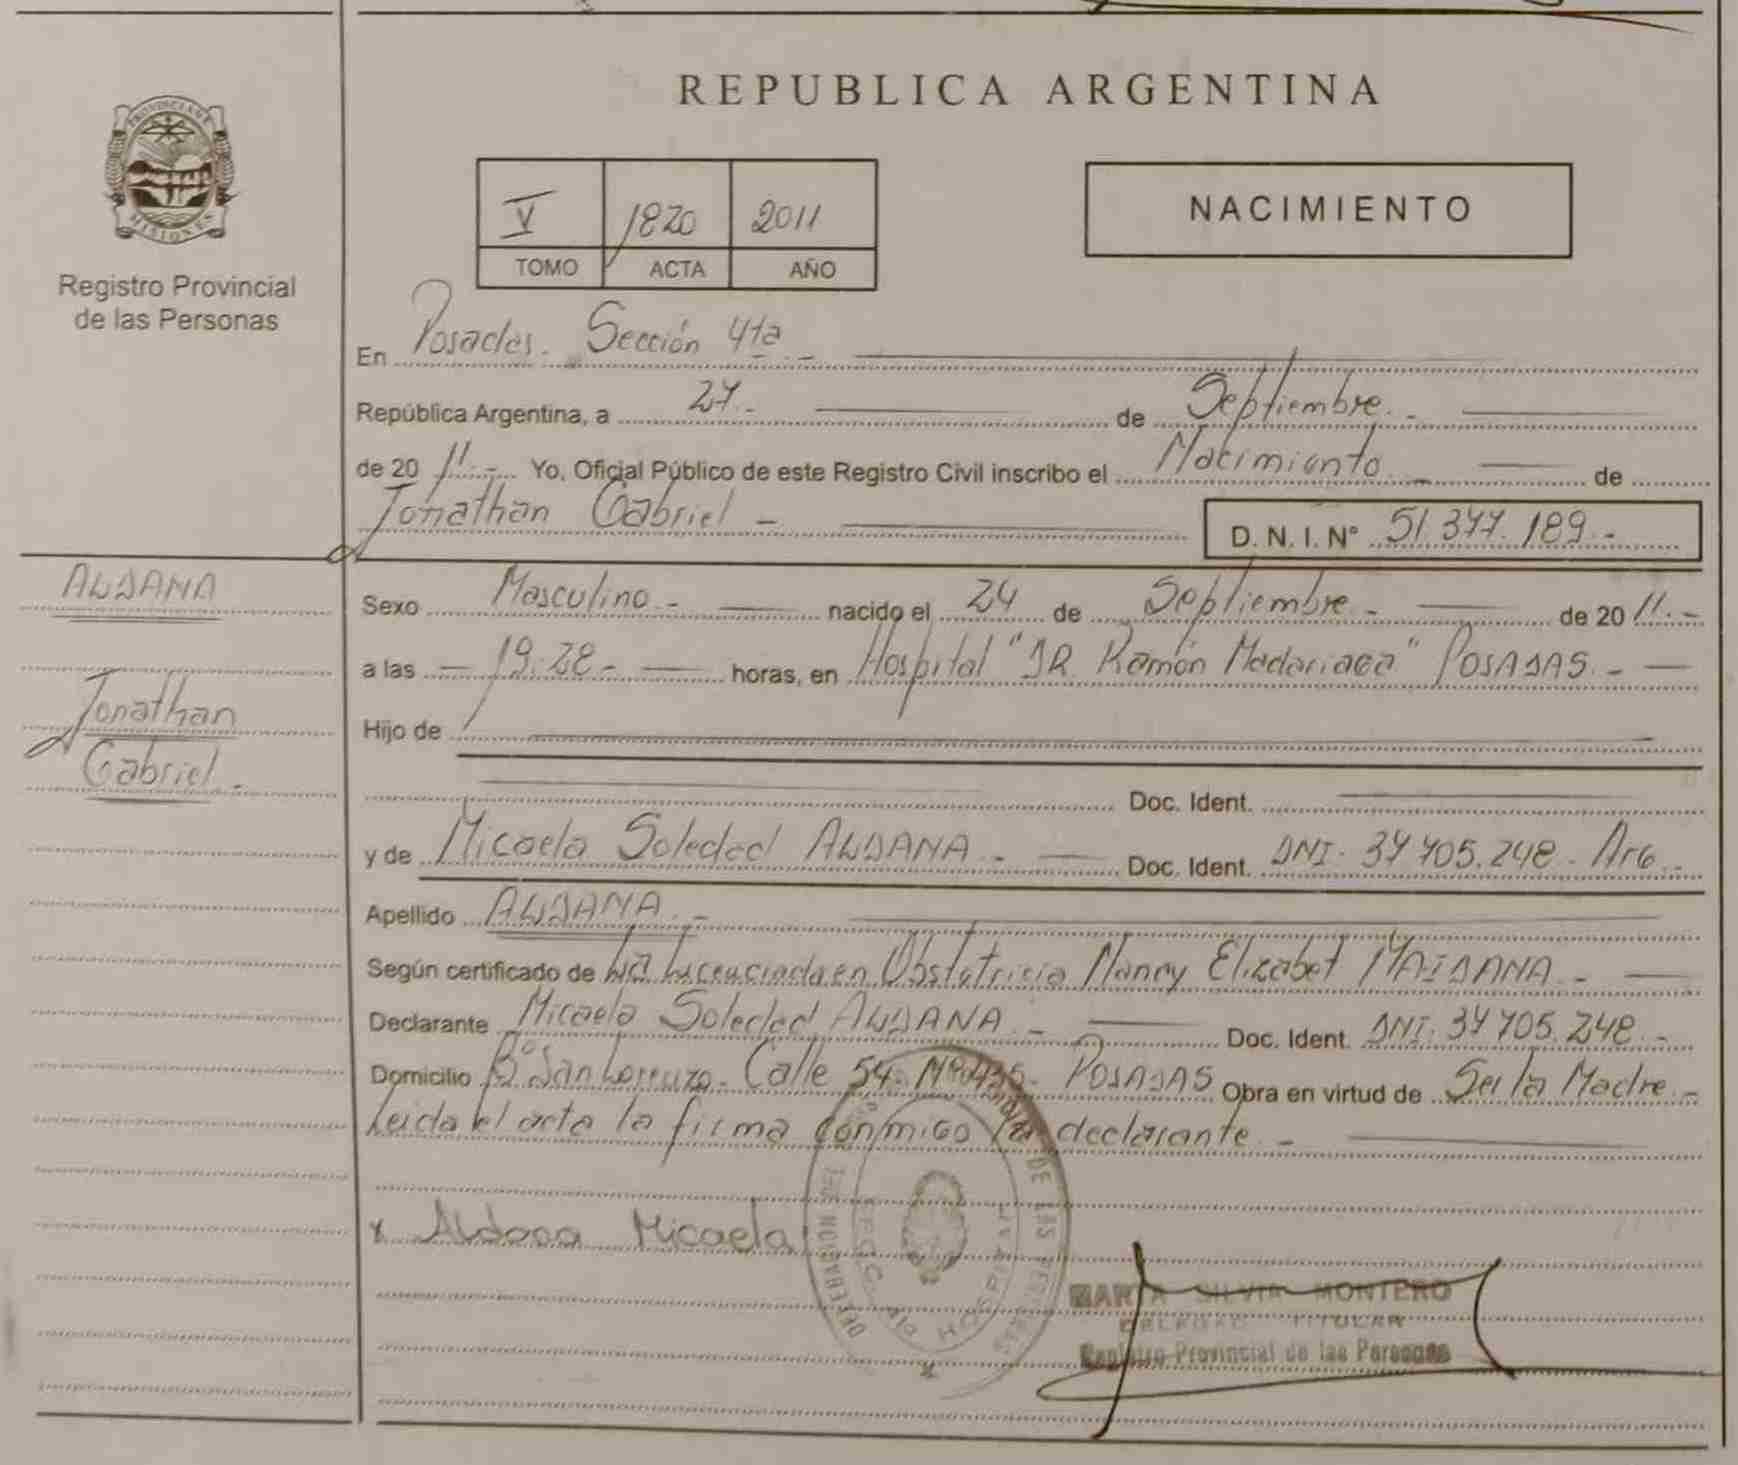 PROVINCIA DE
MISIONES
Registro Provincial
de las Personas
REPUBLICA ARGENTINA
V 1820 2011
TOMO ACTA AÑO
NACIMIENTO
En Posadas. Sección 4ta
República Argentina, a 27.- de Septiembre.-
de 20 11.- Yo, Oficial Público de este Registro Civil inscribo el Nacimiento de
Jonathan Gabriel - D. N. I. N° 51.377.189.-
ALDANA
Jonathan
Gabriel.-
Sexo Masculino.- nacido el 24 de Septiembre.- de 20 11.-
a las - 19:28.- horas, en Hospital "DR. Ramón Madariaga" POSADAS.-
Hijo de
Doc. Ident.
y de Micaela Soledad ALDANA.- Doc. Ident. DNI. 37.705.248. Arg.-
Apellido ALDANA.-
Según certificado de La Licenciada en Obstetricia Nancy Elizabet MAIDANA.-
Declarante Micaela Soledad ALDANA.- Doc. Ident. DNI. 37.705.248.-
Domicilio B° San Lorenzo. Calle 54. N° 0435. POSADAS Obra en virtud de Ser la Madre.-
Leida el acta la firma conmigo la declarante.-
x Aldana Micaela
DE LAS PERSONAS
HOSPITAL
MARTA SILVIA MONTERO
DELEGADO TITULAR
Registro Provincial de las Personas